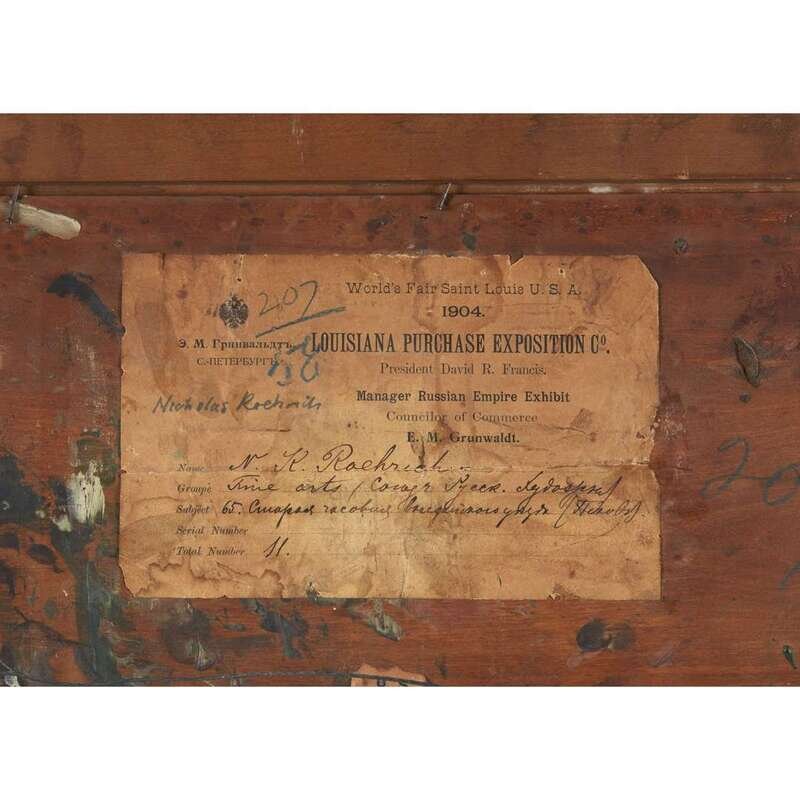 World's Fair Saint Louis U. S. A.
1904.
207
Э. М. Гринвальдтъ
С.-ПЕТЕРБУРГЪ
LOUISIANA PURCHASE EXPOSITION Cº.
President David R. Francis.
Nicholas Roehrich
Manager Russian Empire Exhibit
Councilor of Commerce
E. M. Grunwaldt.
Name N. K. Roehrich
Groupe Fine arts (Союз Русск. Художн)
Subject 65. Старая часовня (Псков).
Serial Number
Total Number 11.
20